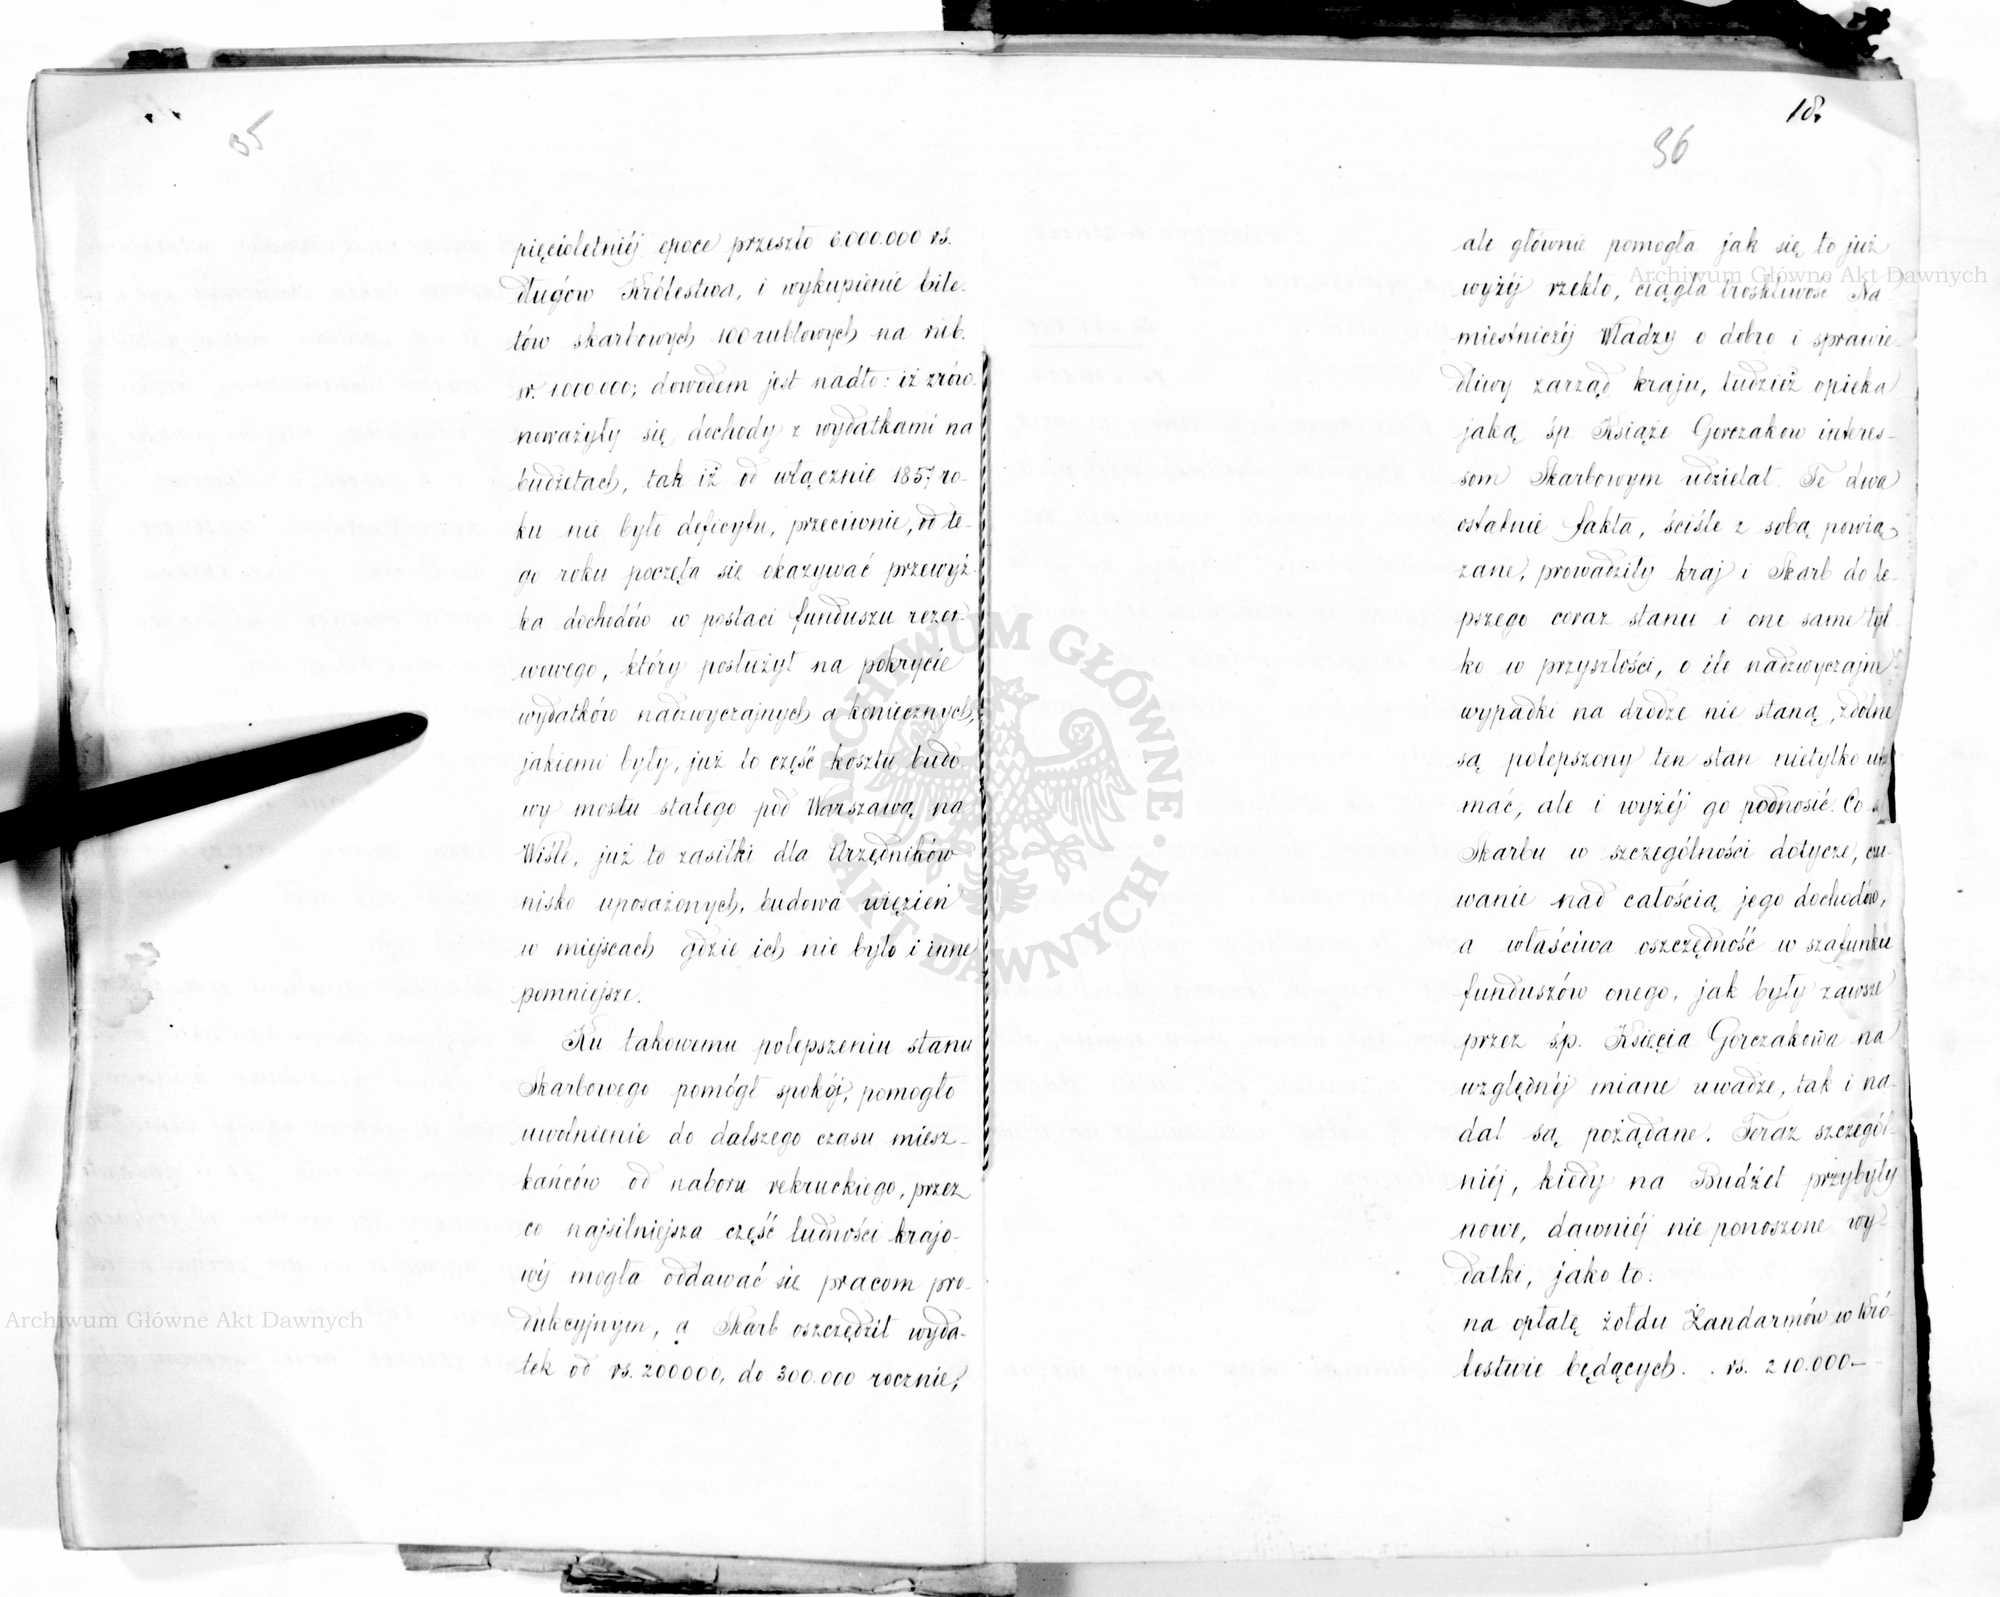 35
pięcioletniéj epoce przeszło 6.000.000 rs.
długów Królestwa, i wykupienie bile-
tów skarbowych 100 rublowych na rub.
sr. 1.000.000; dowodem jest nadto: iż zrów-
noważyły się dochody z wydatkami na
budżetach, tak iż od włącznie 1857 ro-
ku nie było deficytu, przeciwnie, od te-
go roku poczęła się okazywać przewyż-
ka dochodów w postaci funduszu rezer-
wowego, który posłużył na pokrycie
wydatków nadzwyczajnych a koniecznych,
jakiemi były, już to część kosztu budo-
wy mostu stałego pod Warszawą na
Wiśle, już to zasiłki dla Urzędników
nisko uposażonych, budowa więzień
w miejscach gdzie ich nie było i inne
pomniejsze.
Ku takowemu polepszeniu stanu
Skarbowego pomógł spokój, pomogło
uwolnienie do dalszego czasu miesz-
kańców od naboru rekruckiego, przez
co najsilniejsza część ludności krajo-
wéj mogła oddawać się pracom pro-
dukcyjnym, a Skarb oszczędził wyda-
tek od rs. 200000, do 300.000 rocznie,
18.
36
ale głównie pomogła jak się to już
wyżéj rzekło, ciągła troskliwość Na-
miestniczéj Władzy o dobro i sprawie-
dliwy zarząd kraju, tudzież opieka
jaką śp. Książe Gorczakow interes-
som Skarbowym udzielał. Te dwa
ostatnie fakta, ściśle z sobą powią-
zane, prowadziły kraj i Skarb do le-
pszego coraz stanu i one same tyl-
ko w przyszłości, o ile nadzwyczajne
wypadki na drodze nie staną, zdolne
są polepszony ten stan nietylko utrz
mać, ale i wyżéj go podnosić. Co d
Skarbu w szczególności dotycze, czu-
wanie nad całością jego dochodów,
a właściwa oszczędność w szafunku
funduszów onego, jak były zawsze
przez śp. Księcia Gorczakowa na
względnéj miane uwadze, tak i na-
dal są pożądane. Teraz szczegól-
niéj, kiedy na Budżet przybyły
nowe, dawniéj nie ponoszone wy-
datki, jako to:
na opłatę żołdu Żandarmów w Kró-
lestwie będących. . rs. 210.000—
Archiwum Główne Akt Dawnych
Archiwum Główne Akt Dawnych
ARCHIWUM GŁÓWNE · AKT DAWNYCH ·